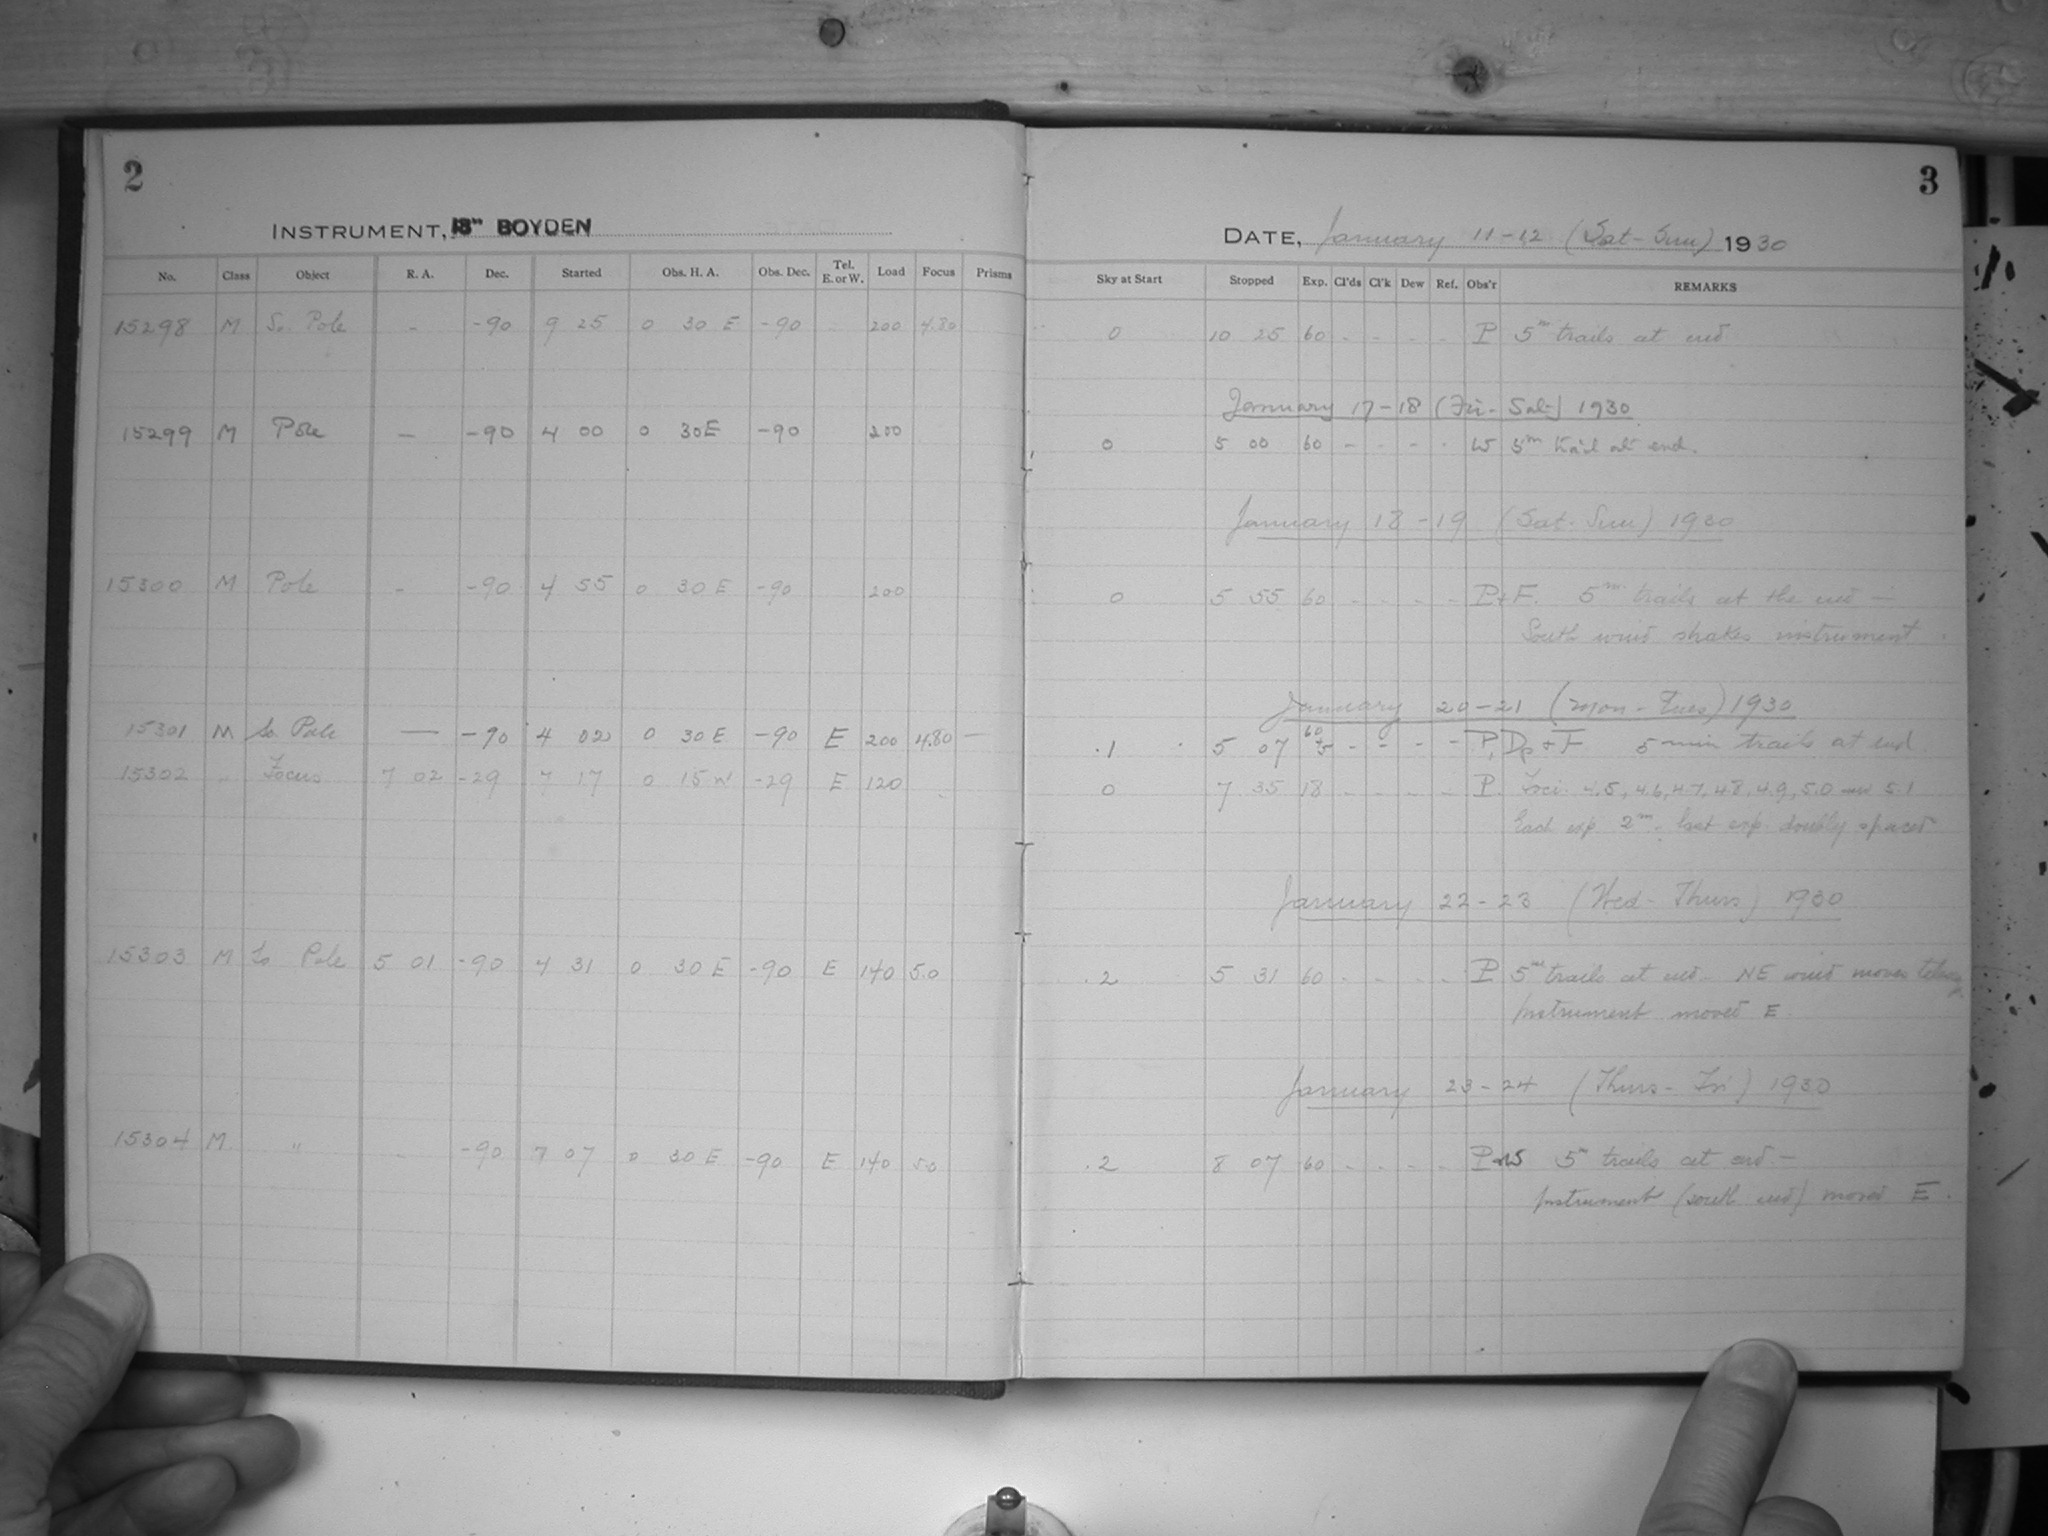 2
INSTRUMENT, 13" BOYDEN
No. Class Object R. A. Dec. Started Obs. H. A. Obs. Dec. Tel. E. or W. Load Focus Prisms
15298 M So. Pole - -90 9 25 0 30 E -90 200 4.80
15299 M Pole - -90 4 00 0 30 E -90 200
15300 M Pole - -90 4 55 0 30 E -90 200
15301 M So. Pole - -90 4 02 0 30 E -90 E 200 4.80 -
15302 " Focus 7 02 -29 7 17 0 15 W -29 E 120
15303 M So Pole 5 01 -90 4 31 0 30 E -90 E 140 5.0
15304 M " - -90 7 07 0 30 E -90 E 140 5.0
3
DATE, January 11-12 (Sat-Sun) 1930
Sky at Start Stopped Exp. Cl'ds Cl'k Dew Ref. Obs'r REMARKS
0 10 25 60 - - - - P 5m trails at end
January 17-18 (Fri-Sat) 1930
0 5 00 60 - - - - W 5m trail at end.
January 18-19 (Sat-Sun) 1930
0 5 55 60 - - - - P+F. 5m trails at the end -
South wind shakes instrument.
January 20-21 (Mon-Tues) 1930
.1 5 07 60 - - - - P, Dp + F 5 min trails at end
0 7 35 18 - - - - P. Foci 4.5, 4.6, 4.7, 4.8, 4.9, 5.0 and 5.1
Each exp. 2m. last exp. doubly spaced
January 22-23 (Wed-Thurs) 1930
.2 5 31 60 - - - - P 5m trails at end. NE wind moves
Instrument moved E.
January 23-24 (Thurs-Fri) 1930
.2 8 07 60 - - - - 5m trails at end -
Instrument (south end) moved E.